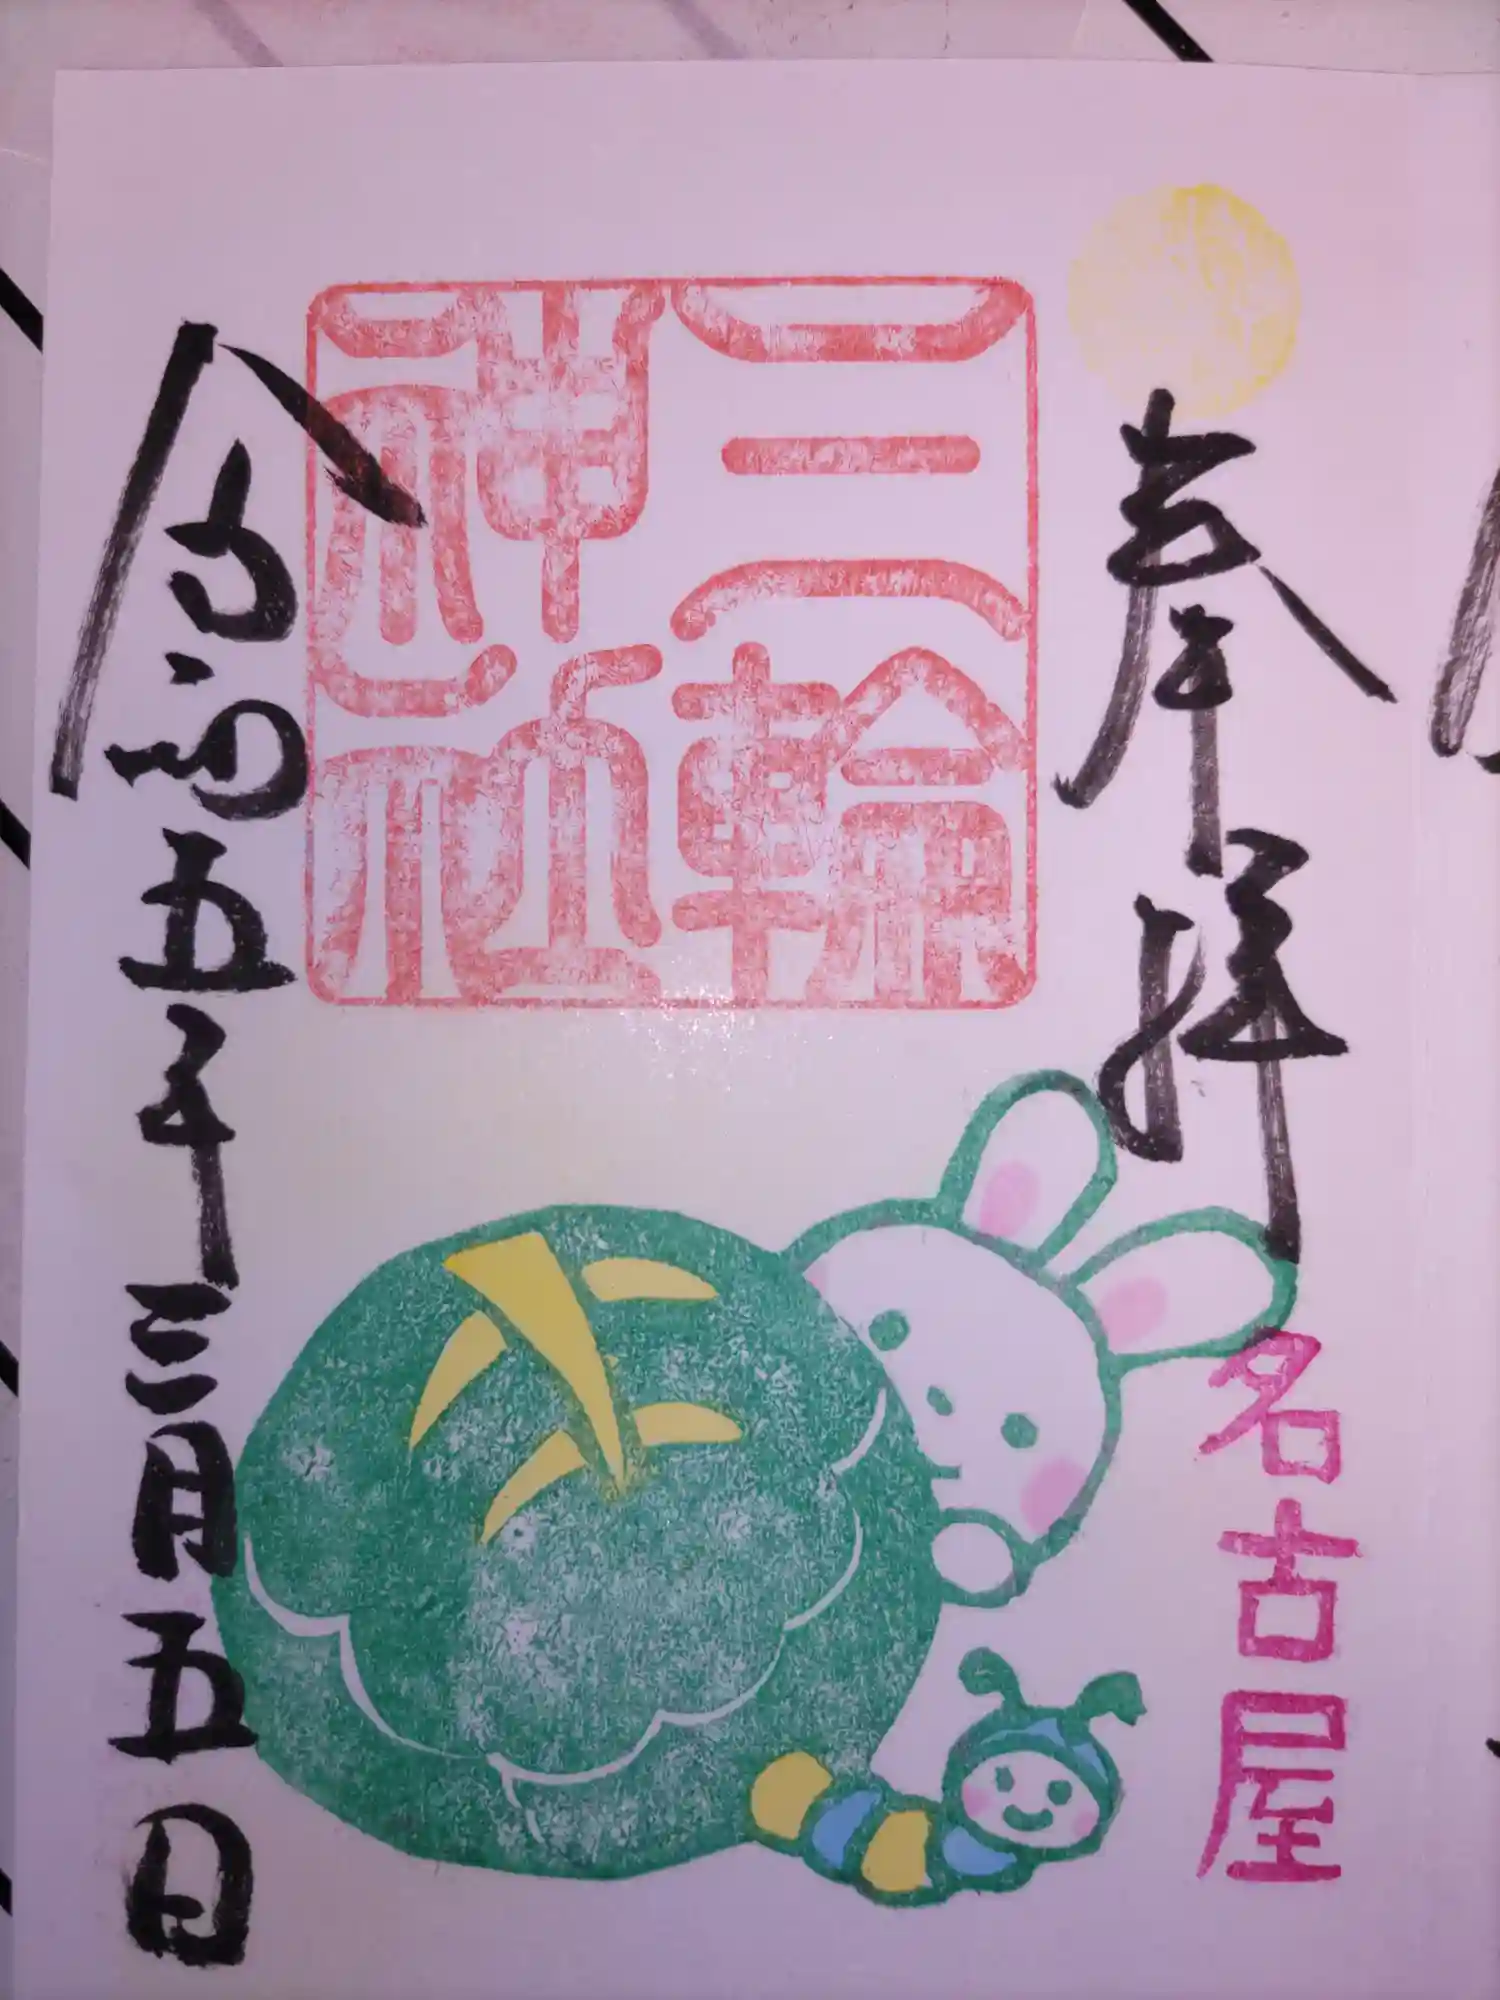 奉拝
名古屋
三輪
神社
令和五年三月五日